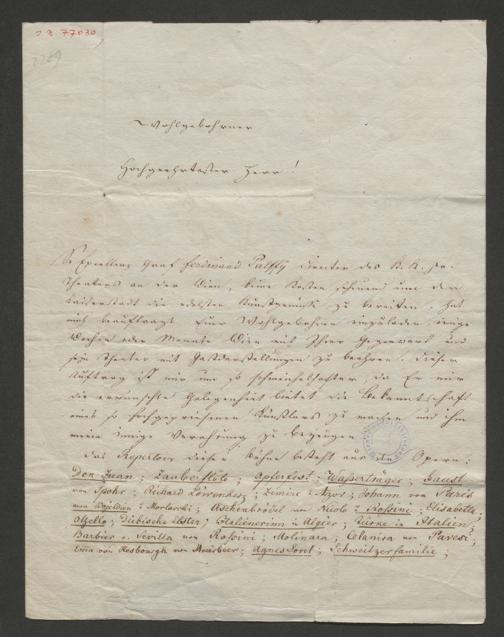 I.N. 77030
Wohlgebohrner
Hochgeehrtester Herr!
Se Excellenz Graf Ferdinand Palffy Director des K. K. pr.
Theaters an der Wien, keine Kosten scheuend um den
Kaiserstadt die edelsten Kunstgenüsse zu bereiten hat
mich beauftragt Euer Wohlgebohren einzuladen einige
Wochen oder Monate Wien mit Ihrer Gegenwart und
sein Theater mit Gastdarstellungen zu beehren. Dieser
Auftrag ist mir um so schmeichelhafter da Er mir
die erwünschte Gelegenheit bietet die Bekanntschaft
eines so hochgepriesenen Künstlers zu machen und ihm
meine innige Verehrung zu bezeugen.
Das Repertoir dieser Bühne besteht aus den Opern:
Don Juan; Zauberflöte; Opferfest; Wasserträger; Faust
von Spohr; Richard Löwenherz; Zemire u Azor; Johann von Paris
von Boieldieu; Aschenbrödel von Nicolo u Rossini; Elisabetta
Otello; Diebische Elster; Italienerinn in Algier; Türke in Italien;
Barbier v. Sevilla von Rossini; Molinara; von Pavesi;
Emma von Resburgh von Meierbeer; Agnes Sorel; Schweitzerfamilie;